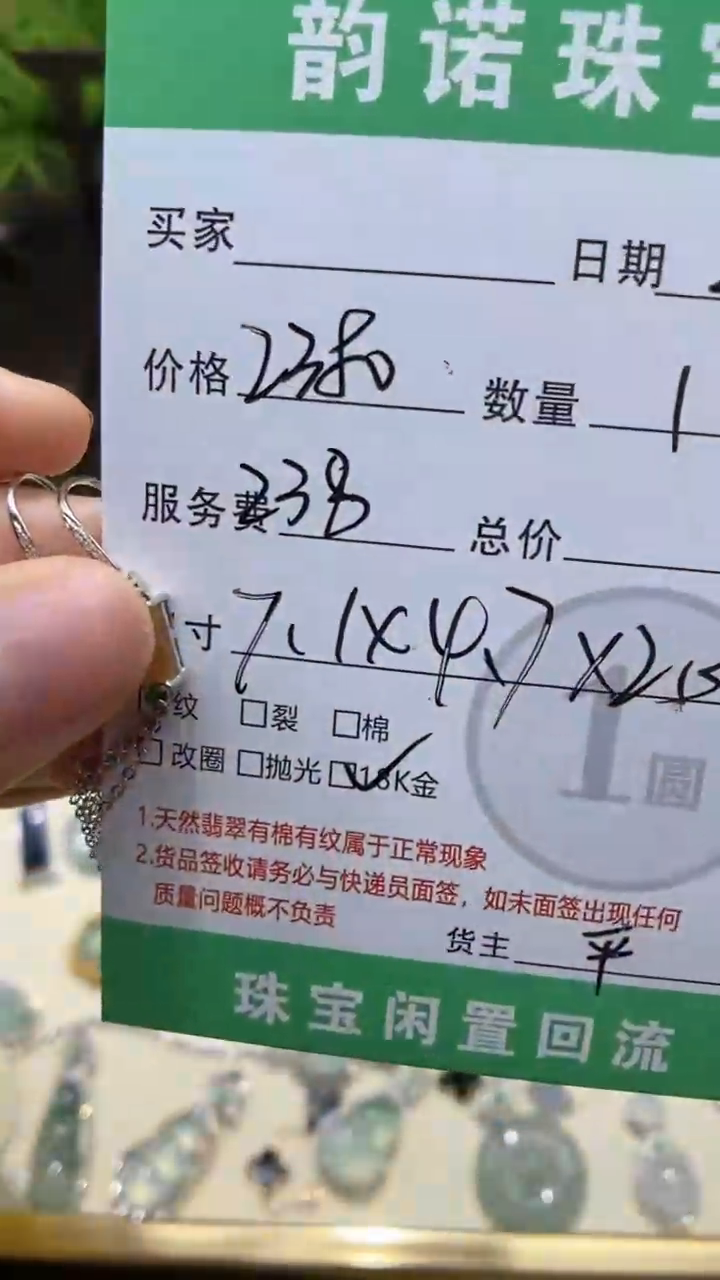 韵诺珠
买家 日期
价格 2380 数量 1
服务费 238 总价
寸 7.1×4.7×2.
纹 □裂 □棉
□改圈 □抛光 ☑18K金
1.天然翡翠有棉有纹属于正常现象
2.货品签收请务必与快递员面签，如未面签出现任何
质量问题概不负责
货主 平
珠宝闲置回流
1圆